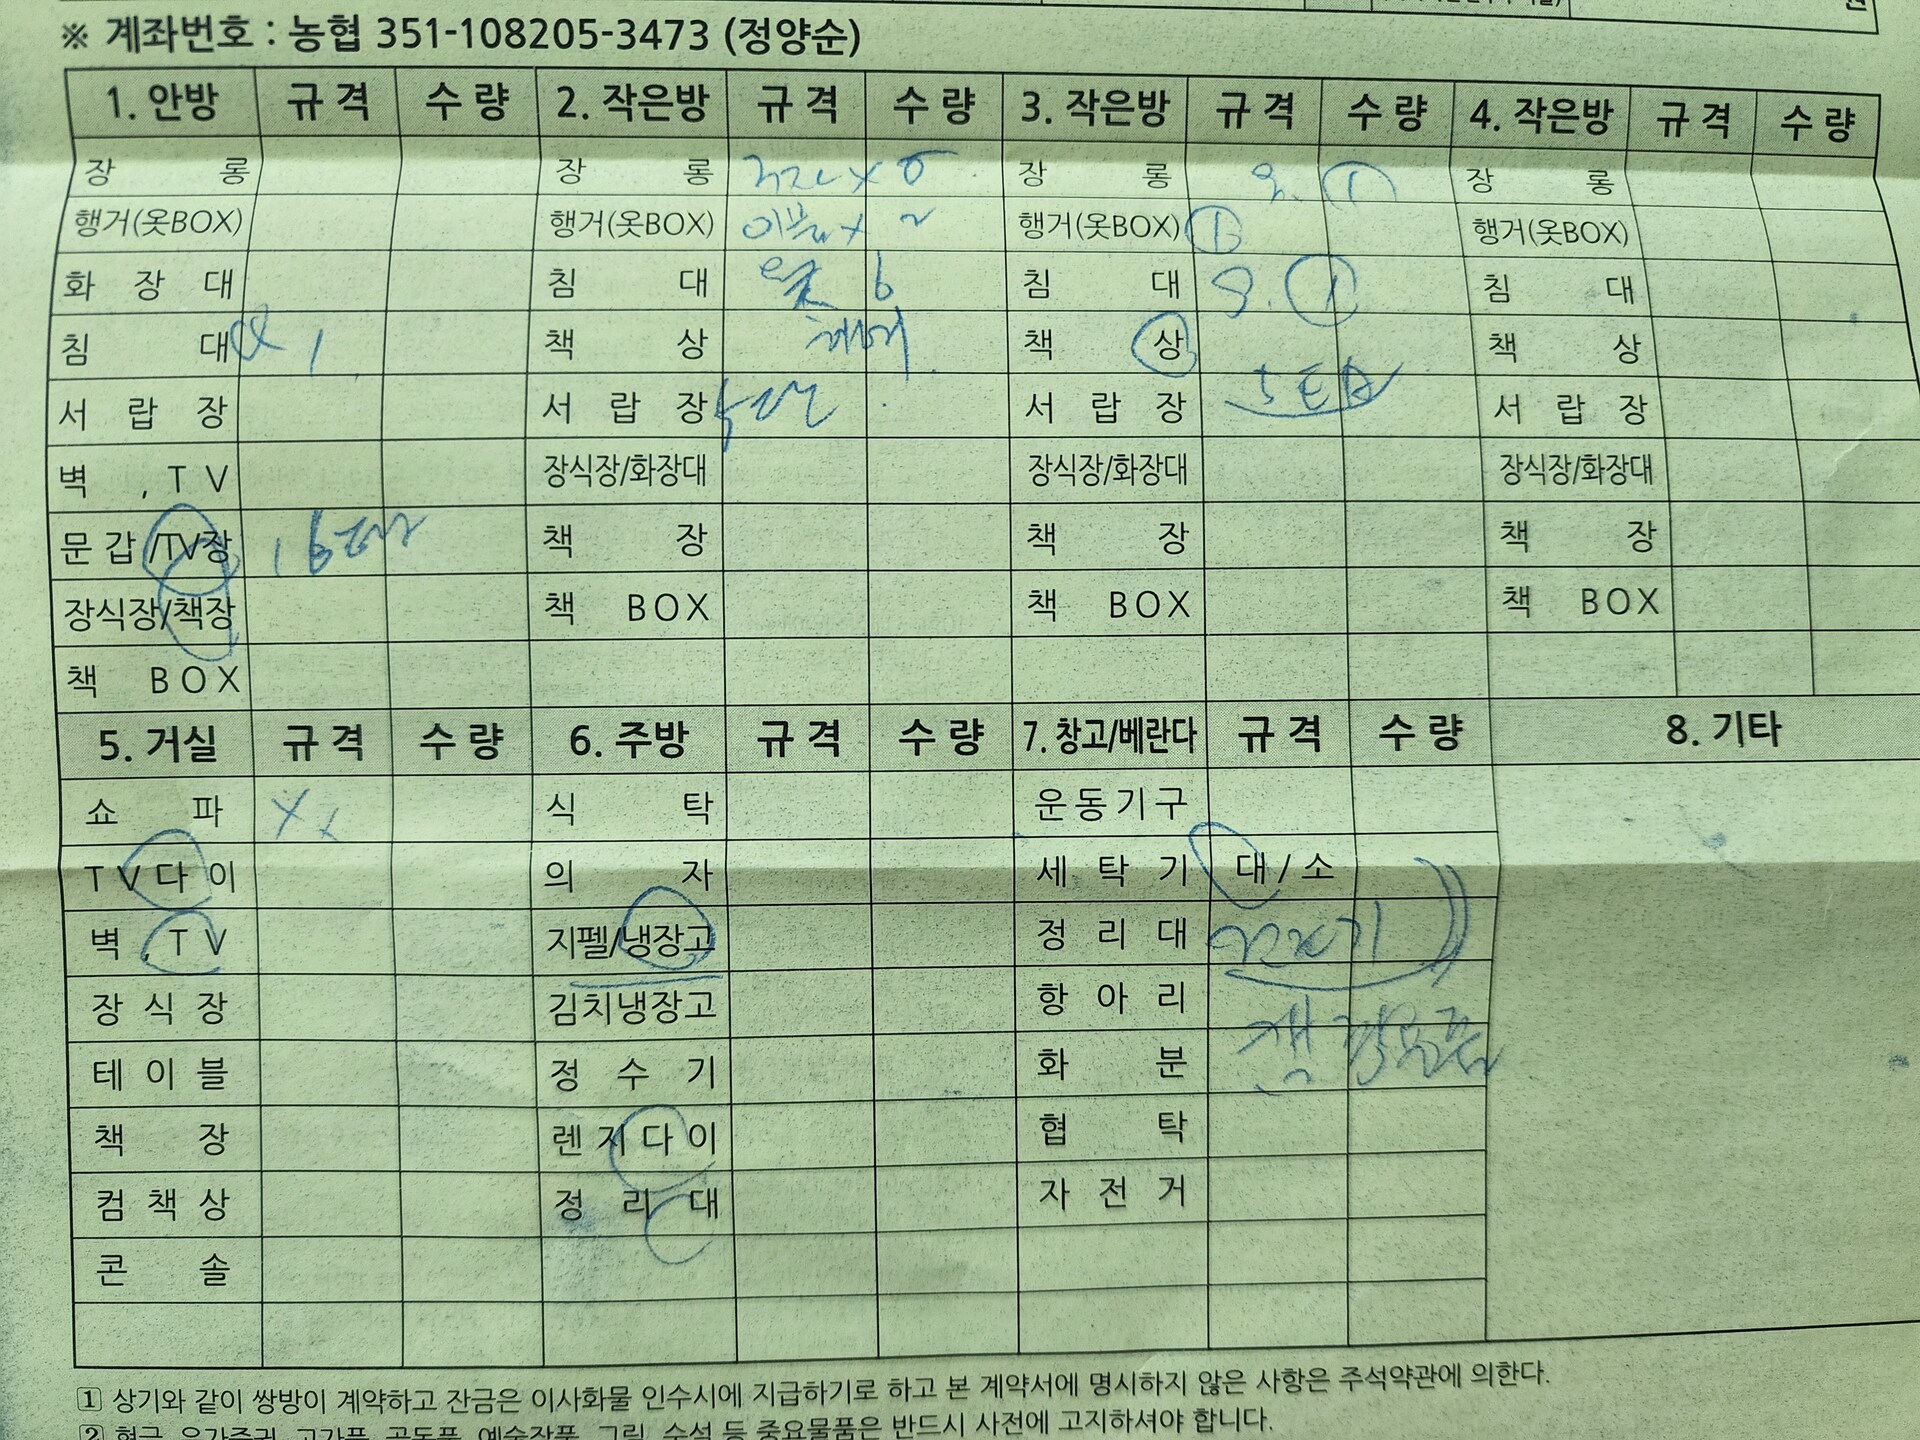 ※ 계좌번호 : 농협 351-108205-3473 (정양순)
1. 안방 규 격 수 량 2. 작은방 규 격 수 량 3. 작은방 규 격 수 량 4. 작은방 규 격 수 량
장 롱 장 롱 장 롱 ① 장 롱
행거(옷BOX) 행거(옷BOX) 2 행거(옷BOX) ① 행거(옷BOX)
화 장 대 침 대 6 침 대 ① 침 대
침 대 1 책 상 책 상 책 상
서 랍 장 서 랍 장 서 랍 장 서 랍 장
벽 , T V 장식장/화장대 장식장/화장대 장식장/화장대
문 갑 /TV장 책 장 책 장 책 장
장식장/책장 책 BOX 책 BOX 책 BOX
책 BOX
5. 거실 규 격 수 량 6. 주방 규 격 수 량 7. 창고/베란다 규 격 수 량 8. 기타
쇼 파 X x 식 탁 운동기구
TV다이 의 자 세 탁 기 대 / 소
벽 , T V 지펠/냉장고 정 리 대
장 식 장 김치냉장고 항 아 리
테 이 블 정 수 기 화 분
책 장 렌지다이 협 탁
컴 책 상 정 리 대 자 전 거
콘 솔
1 상기와 같이 쌍방이 계약하고 잔금은 이사화물 인수시에 지급하기로 하고 본 계약서에 명시하지 않은 사항은 주석약관에 의한다.
2 현금, 유가증권, 고가품, 골동품, 예술작품, 그림, 수석 등 중요물품은 반드시 사전에 고지하셔야 합니다.